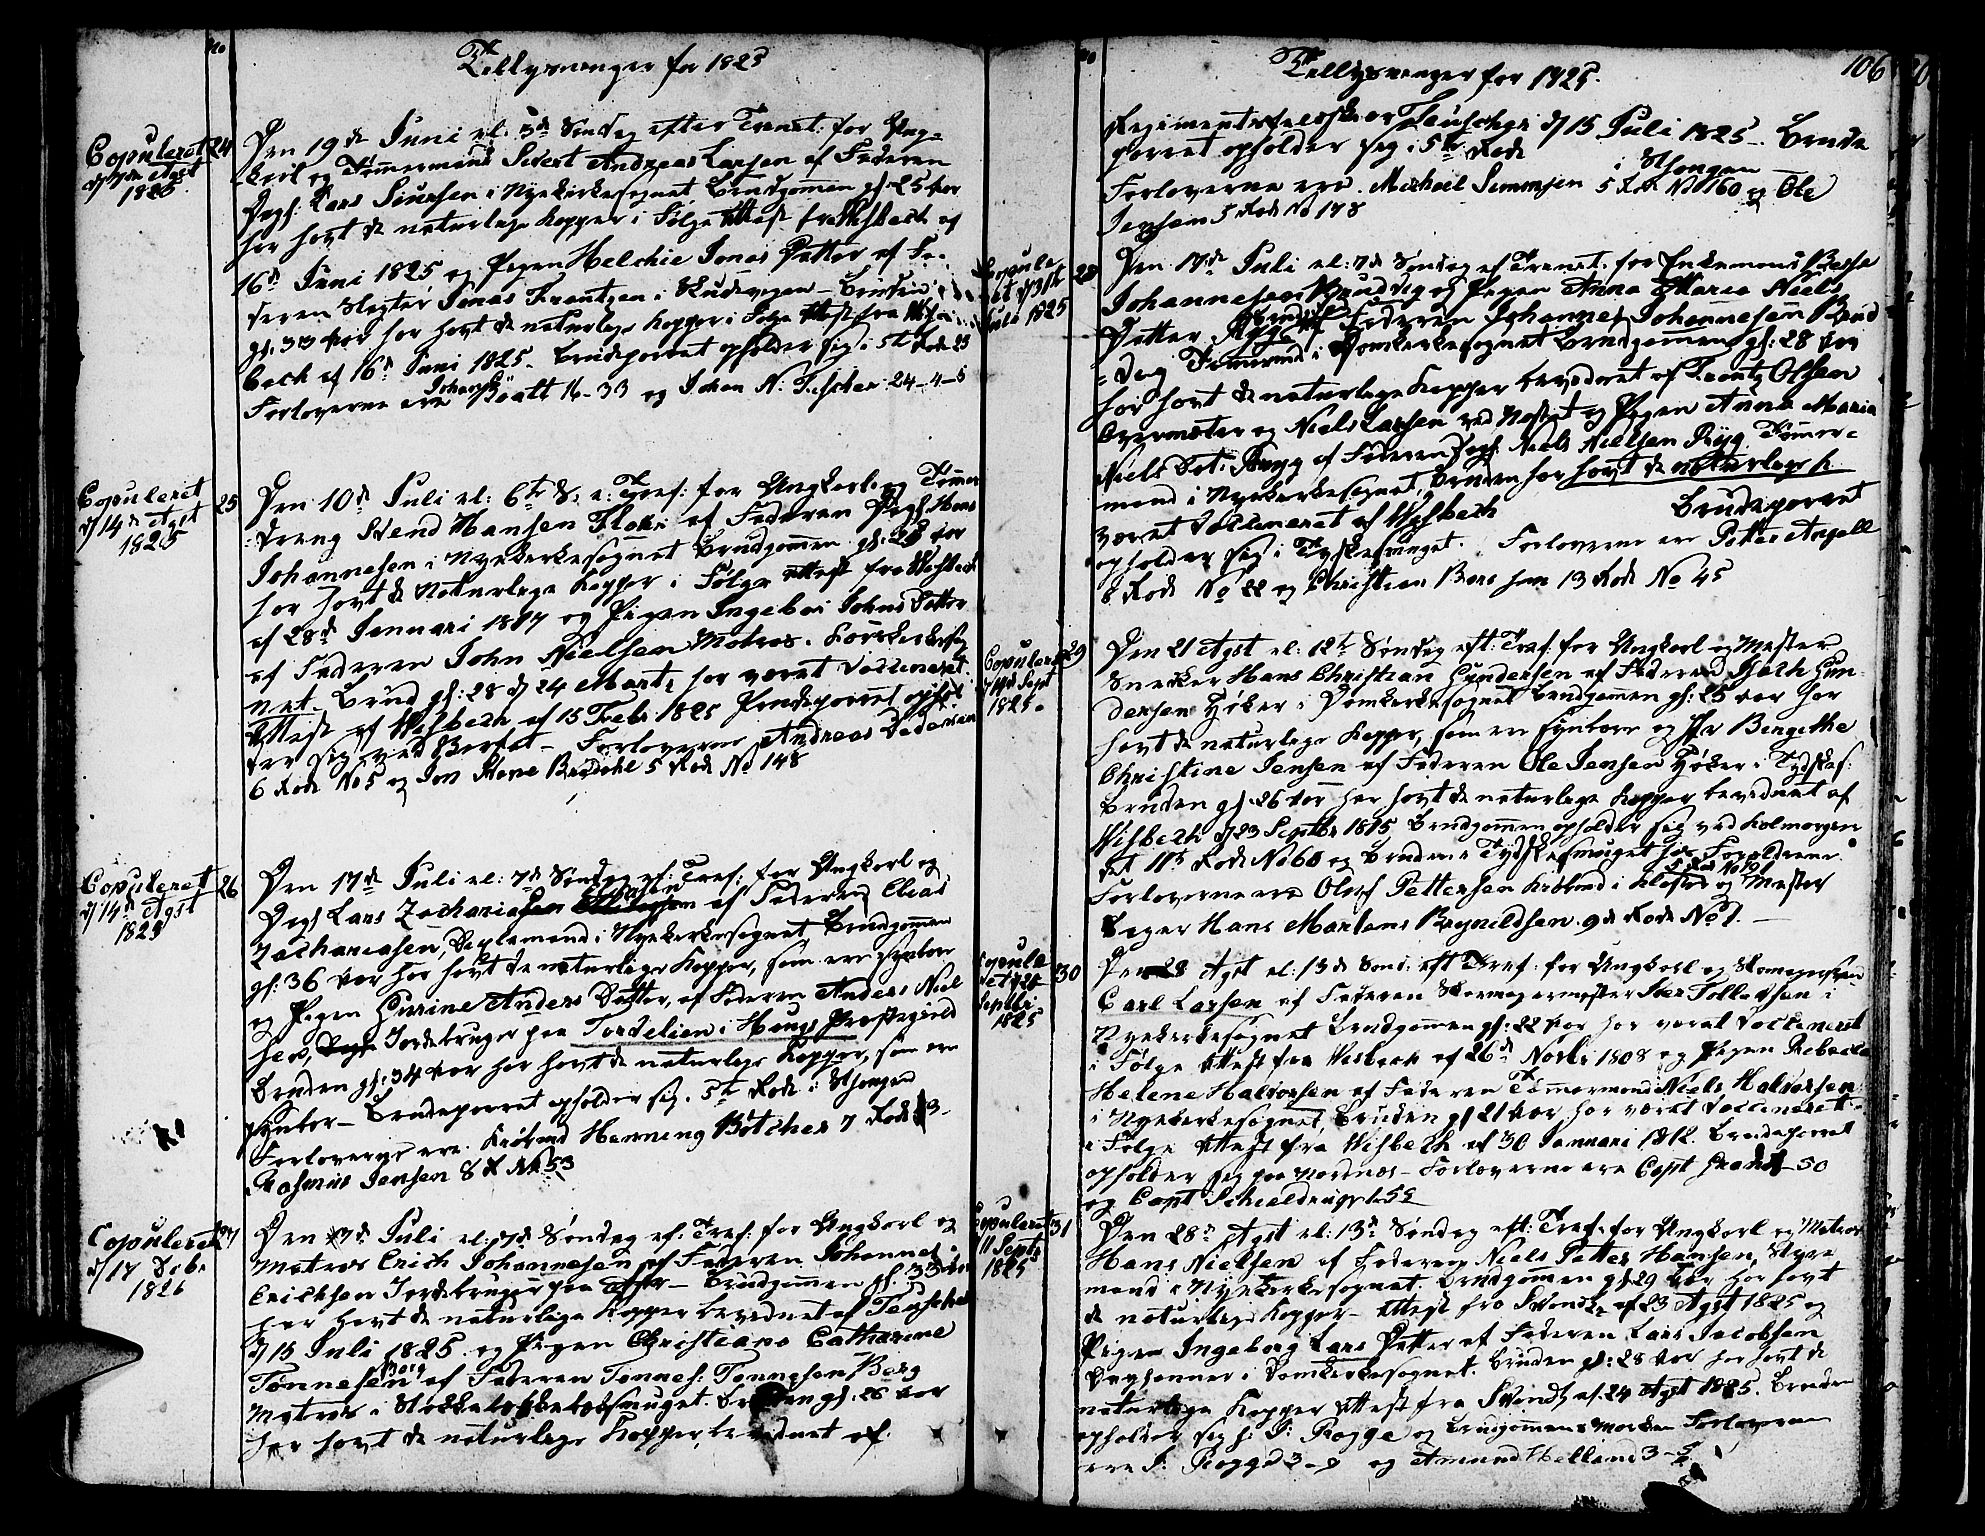 No
Tillysninger for 1825
Copuleret
d 7de Agst
1825
24
Den 19de Juni el. 3de Søndag efter Trenet: for Ung-
karl og Tømermand Sivert Andreas Larsen af Faderen
Dagl: Lars Siversen i Nyekirkesognet, Brudgomen gl: 25 Aar
har havt de naturlige Kopper i Følge Attest fra Wisbech af
16de Juni 1825 og Pigen Helchie Jonas Datter af Fa-
deren Slagter Jonas Frantzen i Skudevigen - Bruden
gl: 33 Aar har havt de naturlige Kopper i Følge Attest fra Wis-
bech af 16de Juni 1825. Brudeparret opholder sig i 5te Rode 23
Forloverne ere Johan Boalt 16-33 og Johan N: Fischer 24-4-5
Copuleret
d 14de Agst
1825
25
Den 10de Juli el: 6te S: e: Tref: for Ungkarl og Tømer
dreng Svend Hansen Floen af Faderen Dagl Hans
Johannesen i Nyekirkesognet Brudgomen gl: 28 Aar
har havt de Naturlige Kopper i Følge Attest fra Wisbech
af 28de Januari 1817 og Pigen Ingebor Johns Datter
af Faderen John Nielsen Matros. Korskirkesog
net. Brud gl: 28 d 24 Marti har været Vaccineret
Attest af Wisbech af 15 Febr 1825 Brudeparret ophol
der sig ved Børset - Forloverne Andreas Pedersen
6 Rode No 5 og Jon Stene Bredahl 5 Rode No 148
Copuleret
d 14de Agst
1825
26
Den 17de Juli el: 7de Søndag ef: Tref: for Ungkarl og
Dagl Lars Zachariasen Eliasen af Faderen Elias
Zachariasen, Pleiemand i Nyekirkesognet Brudgomen
gl: 36 Aar har havt de naturlige Kopper, som ere synbare
og Pigen Gurine Anders Datter, af Faderen Anders Niel
sen, Jordbruger paa Tordelien i Hougs Præstegield
Bruden gl: 34 Aar har havt de naturlige Kopper, som ere
synbar - Brudeparret opholder sig. 5te Rode i Strangen
Forloverne ere. Krøbmd Henning Bøtcher 7 Rode 3-
Rasmus Jensen 8 R No 53
Copuleret
d 17 Febr
1826
27
Den 17de Juli el: 7de Søndag ef: Tref: for Ungkarl og
Matros Erich Johannesen af Faderen Johannes
Erichsen Jordbruger paa Askøe - Brudgomen gl: 33 Aar
har havt de naturlige Kopper bevidnet af Teuscher
d 15 Juli 1825 og Pigen Christiane Catharine
Tønnesen Berg af Faderen Tønnes: Tønnesen Berg
Matros i Støckebekkesmuget. Bruden gl: 26 Aar
har havt de naturlige Kopper, bevidnet af
No
Tillysninger for 1825.
106
Regimentsfeldskiær Teuscher d 15 Juli 1825 - Brude
parret opholder sig i 5te Rode i Strangen
Forloverne ere. Michael Simonsen 5 Rode No 160 og Ole
Jensen 5 Rode No 148
Copule
ret d 31te
Juli 1825
28
Den 17de Juli el: 7de Søndag ef Trenet. for Enkemand Basse
Johannesen Brudvig og Pigen Anna Maria Niels
Datter Ryg Brudg: Faderen Johannes Johannesen Brud
vig Tømermd i Domkirkesognet Brudgomen gl: 28 Aar
har havt de naturlige Kopper bevidnet af Frantz Olsen
Overmester og Niels Larsen ved Nøstet og Pigen Anna Maria
Niels Dat: Ryg af Faderen Dagl. Niels Nielsen Ryg Tømer-
mand i Nyekirkesognet, Bruden har havt de naturlige k.
været Vaccineret af Wisbech
Brudeparret
opholder sig i Tydskesmuget. Forloverne ere Peter Angell
8 Rode No 22 og Christian Bors hen 13 Rode No 45
Copuleret
d 14de Sept
1825.
29
Den 21 Agst el: 12te Søndag eft: Tref: for Ungkarl og Mester
Snecker Hans Christian Gundersen af Faderen Hach Gun-
dersen Høker i Domkirkesognet Brudgomen gl: 25 Aar har
havt de naturlige Kopper, som ere synbare og Pig Bergithe
Christine Jensen af Faderen Ole Jensen Høker i Tydskes:
Bruden gl: 26 Aar har havt de naturlige Kopper bevidnet af
Wisbech d 23 Septbr 1815, Brudgomen opholder sig ved Holmergen
det 11te Rode No 60 og Bruden i Tydskesmuget hos Forældrene
Forloverne ere Oluf Pettersen Krøbmd i Klostret 5 Rode No 19 og Mester
Bager Hans Martens Reynildsen 9de Rode No 1.
Copule
ret d 25
Septbr
1825
30
Den 28 Agst el: 13de Sønd: eft Tref: for Ungkarl og Skomagersven
Carl Larsen af Faderen Skomagermester Iver Tollefsen i
Nyekirkesognet Brudgomen gl: 22 Aar har været Vaccineret
i Følge Attest fra Wisbech af 26de Novbr 1808 og Pigen Rebecka
Helene Halvorsen af Faderen Tømermand Niels Halvorsen
i Nyekirkesognet, Bruden gl 21 Aar har været Vaccineret
i Følge Attest fra Wisbech af 30 Januari 1812. Brudeparret
opholder sig paa Nordnæs - Forloverne ere Capt Grandt - 50
og Capt Schieldrup 1-55
Copuleret
11 Septbr
1825
31
Den 28de Agst el: 13de Søndag eft: Tref: for Ungkarl og Matros
Hans Nielsen af Faderen Niels Petter Hansen, Styre
mand i Nyekirkesognet. Brudgomen gl 29 Aar har havt
de naturlige Kopper - Attest fra Svendsen af 23 Agst 1825 og
Pigen Ingeborg Lars Datter af Faderen Lars Jacobsen
Dagtønner i Domkirkesognet. Bruden gl: 28 Aar har havt de
naturlige Kopper Attest fra Svendsen af 24 Agst 1825. Bruden
opholder sig h: I: Rogge og Brudgomen i Marken Forloverne
ere I: Rogge 3-9 og Amund Helland 3-5